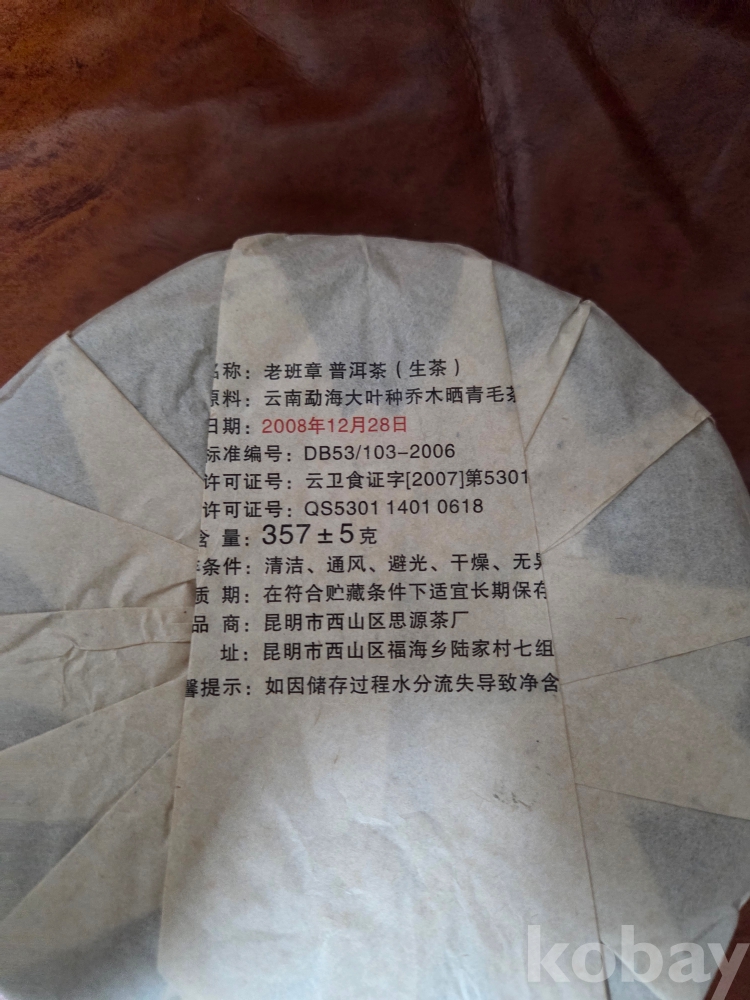 名称：老班章 普洱茶（生茶）
原料：云南勐海大叶种乔木晒青毛茶
日期：2008年12月28日
标准编号：DB53/103-2006
许可证号：云卫食证字[2007]第5301
许可证号：QS5301 1401 0618
含 量：357±5克
条件：清洁、通风、避光、干燥、无异
质 期：在符合贮藏条件下适宜长期保存
品 商：昆明市西山区思源茶厂
址：昆明市西山区福海乡陆家村七组
馨提示：如因储存过程水分流失导致净含
kobay